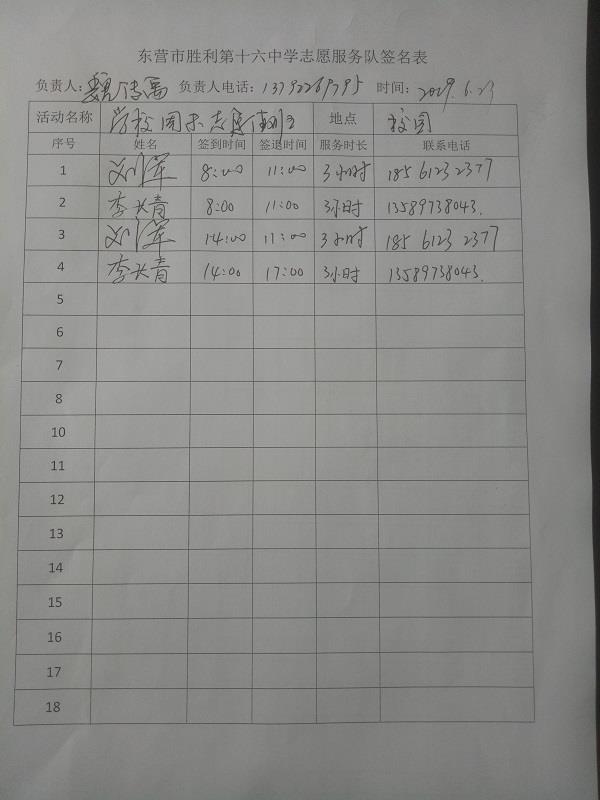 东营市胜利第十六中学志愿服务队签名表
负责人: 魏传禹 负责人电话: 13792269795 时间: 2019.6.23
活动名称 学校周末志愿值班 地点 校园
序号 姓名 签到时间 签退时间 服务时长 联系电话
1 刘军 8:00 11:00 3小时 185 6123 2377
2 李长青 8:00 11:00 3小时 13589738043.
3 刘军 14:00 17:00 3小时 185 6123 2377
4 李长青 14:00 17:00 3小时 13589738043.
5
6
7
8
10
11
12
13
14
15
16
17
18